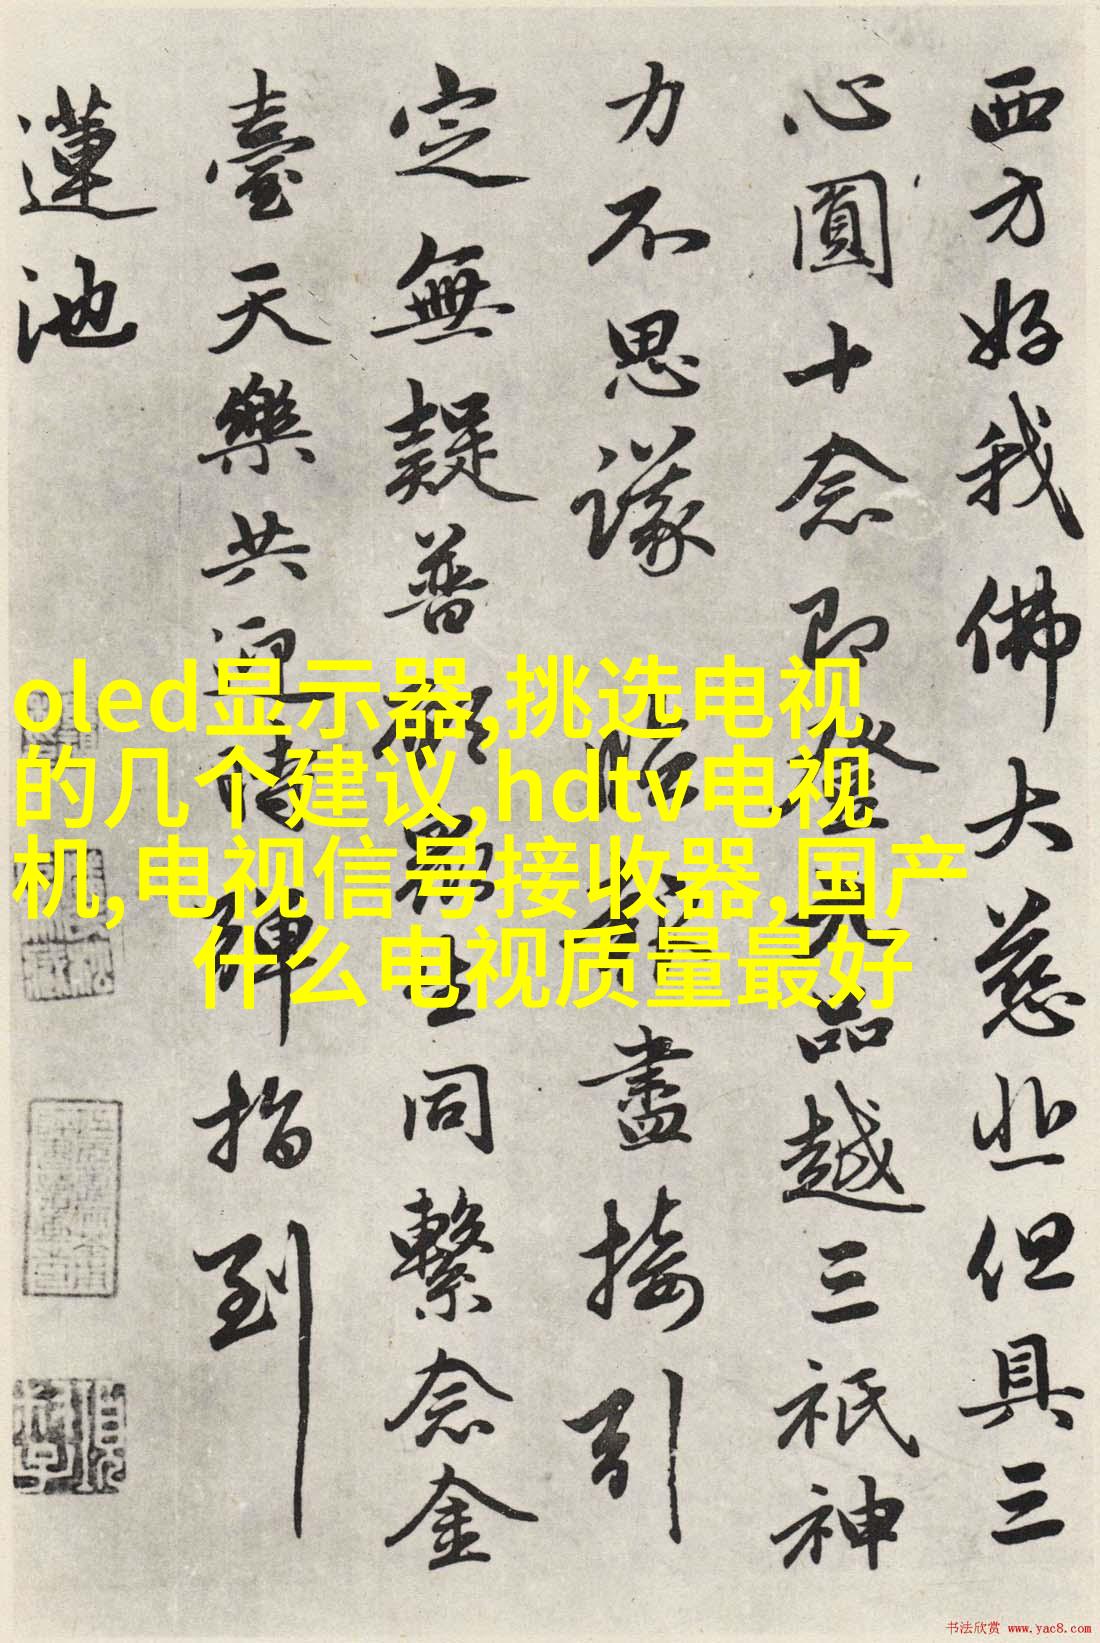 西方好我佛大慈悲但具三
心圓十念即登九品越三祇神
力不思議盡接引
定無疑普願眾生同繫念金
臺天樂共迎待彈指到
蓮池
oled显示器,挑选电视
的几个建议,hdtv电视
机,电视信号接收器,国产
什么电视质量最好
书法欣赏 www.yac8.com